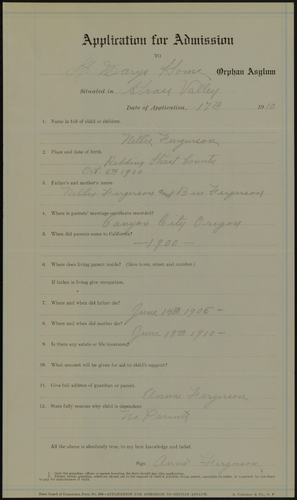 Application for Admission
TO
St Marys Home, Orphan Asylum
Situated in Grass Valley
Date of Application, 17th 1910
1. Name in full of child or children.
Nettie Ferguson
2. Place and date of birth.
Redding Shasta County
Oct. 6th 1900
3. Father's and mother's name
Nettie Ferguson and Ben Ferguson
4. Where is parents' marriage certificate recorded?
Canyon City Oregon
5. When did parents come to California?
—1900—
6. Where does living parent reside? (Give town, street and number.)
If father is living give occupation.
7. Where and when did father die?
June 14th 1905 -
8. Where and when did mother die?
June 19th 1910 -
9. Is there any estate or life insurance?
10. What amount will be given for aid to child's support?
11. Give full address of guardian or parent.
Anna Ferguson
12. State fully reasons why child is dependent.
No Parents
All the above is absolutely true, to my best knowledge and belief.
Sign Anna Ferguson